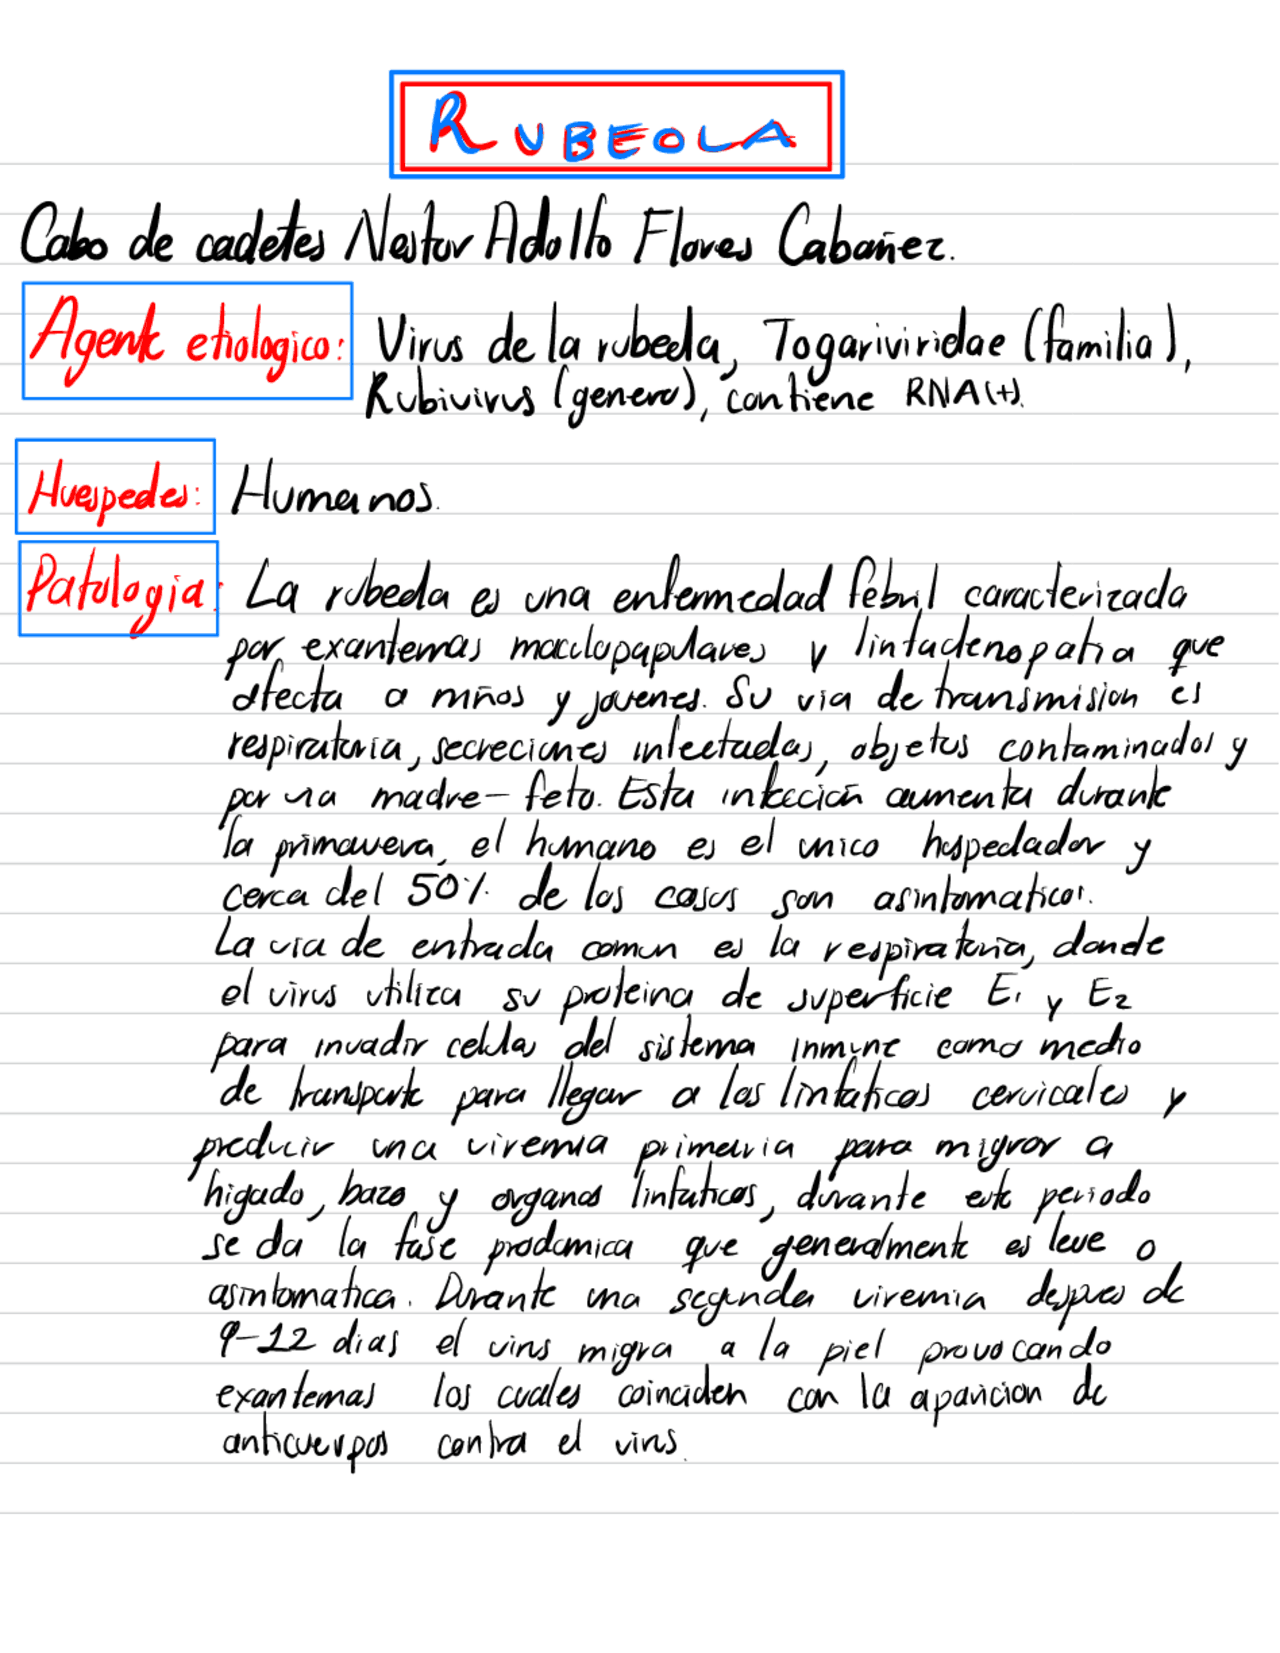 RUBEOLA
Cabo de cadetes Nestor Adolfo Flores Cabañez.
Agente etiologico: Virus de la rubeola, Togariviridae (familia),
Rubivirus (genero), contiene RNA(+).
Huespedes: Humanos.
Patologia: La rubeola es una enfermedad febril caracterizada
por exantemas maculopapulares y linfadenopatia que
afecta a niños y jovenes. Su via de transmision es
respiratoria, secreciones infectadas, objetos contaminados y
por via madre-feto. Esta infección aumenta durante
la primavera, el humano es el unico hospedador y
cerca del 50% de los casos son asintomaticos.
La via de entrada comun es la respiratoria, donde
el virus utiliza su proteina de superficie E1 y E2
para invadir celulas del sistema inmune como medio
de transporte para llegar a los linfaticos cervicales y
producir una viremia primaria para migrar a
higado, bazo y organos linfaticos, durante este periodo
se da la fase prodomica que generalmente es leve o
asintomatica. Durante una segunda viremia despues de
9-12 dias el virus migra a la piel provocando
exantemas los cuales coinciden con la aparicion de
anticuerpos contra el virus.